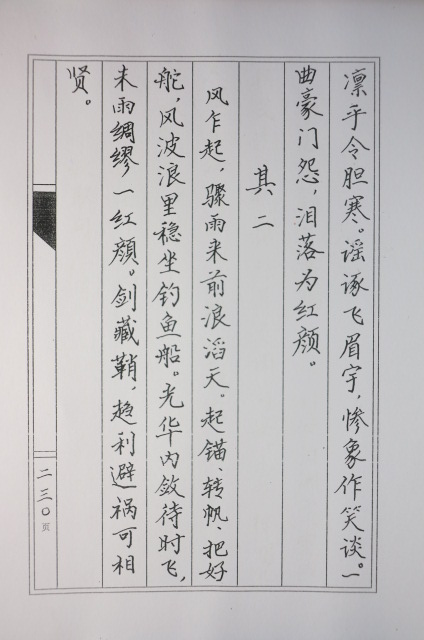 凛乎令胆寒。谣诼飞眉宇，惨象作笑谈。一
曲豪门怨，泪落为红颜。
其二
风乍起，骤雨来前浪滔天。起锚、转帆、把好
舵，风波浪里稳坐钓鱼船。光华内敛待时飞，
未雨绸缪一红颜。剑藏鞘，趋利避祸可相
贤。
二三〇页